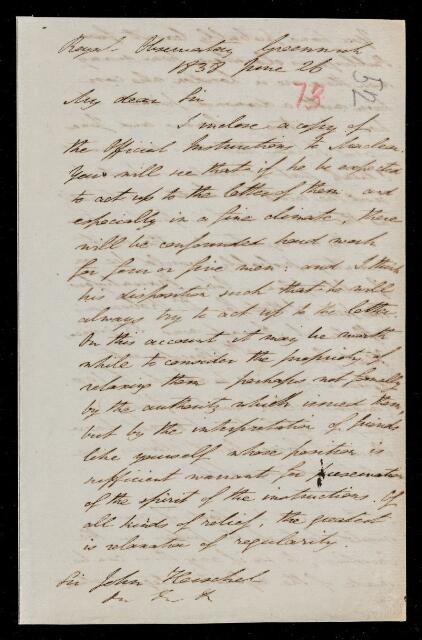 Royal Observatory Greenwich
1838 June 26
73
52
My dear Sir
I inclose a copy of
the Official Instructions to Maclear.
You will see that if he be expected
to act up to the letter of them and
especially in a fine climate, there
will be confounded hard work
for four or five men: and I think
his disposition such that he will
always try to act up to the letter.
On this account it may be worth
while to consider the propriety of
relaxing them — perhaps not formally
by the authority which issued them,
but by the interpretation of friends
like yourself whose position is
sufficient warrant for preservation
of the spirit of the instructions. Of
all kinds of relief, the greatest
is relaxation of regularity.
Sir John Herschel